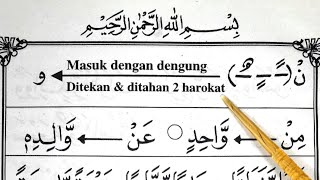 بِسْمِ اللّٰهِ الرَّحْمٰنِ الرَّحِيْمِ
Masuk dengan dengung
نْ (ـًـ ـٍـ ـٌـ) ← و
Ditekan & ditahan 2 harokat
مِنْ ← وَّاحِدٍ ○ عَنْ ← وَّالِدِهٖ